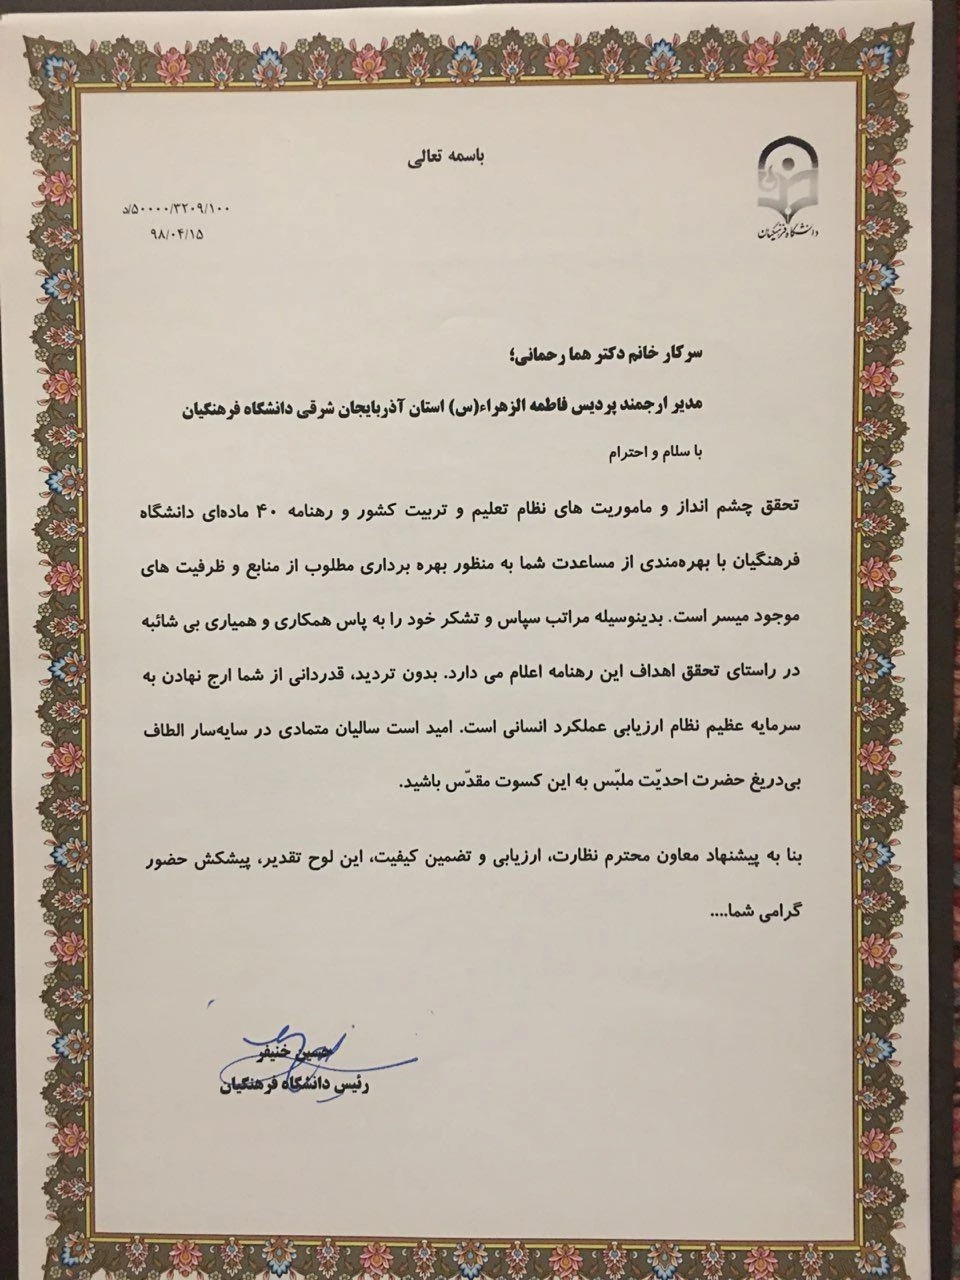 باسمه تعالی
دانشگاه فرهنگیان
۵۰۰۰۰/۳۲۰۹/۱۰۰/د
۹۸/۰۴/۱۵
سرکار خانم دکتر هما رحمانی؛
مدیر ارجمند پردیس فاطمه الزهراء(س) استان آذربایجان شرقی دانشگاه فرهنگیان
با سلام و احترام
تحقق چشم انداز و ماموریت های نظام تعلیم و تربیت کشور و رهنامه ۴۰ ماده‌ای دانشگاه
فرهنگیان با بهره‌مندی از مساعدت شما به منظور بهره برداری مطلوب از منابع و ظرفیت های
موجود میسر است. بدینوسیله مراتب سپاس و تشکر خود را به پاس همکاری و همیاری بی شائبه
در راستای تحقق اهداف این رهنامه اعلام می دارد. بدون تردید، قدردانی از شما ارج نهادن به
سرمایه عظیم نظام ارزیابی عملکرد انسانی است. امید است سالیان متمادی در سایه‌سار الطاف
بی‌دریغ حضرت احدیّت ملبّس به این کسوت مقدّس باشید.
بنا به پیشنهاد معاون محترم نظارت، ارزیابی و تضمین کیفیت، این لوح تقدیر، پیشکش حضور
گرامی شما....
حسین خنیفر
رئیس دانشگاه فرهنگیان